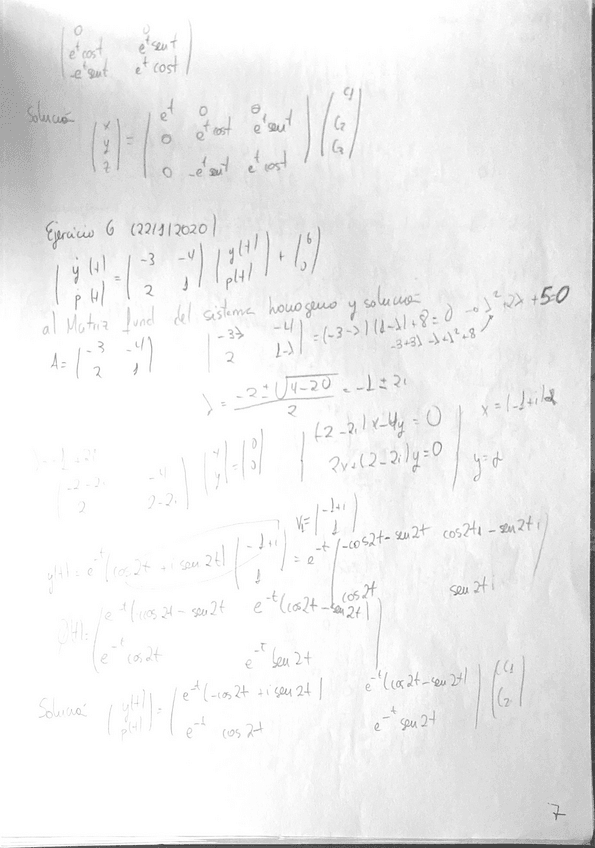 0 0
e^t cost e^t sent
-e^t sent e^t cost
Solución (x y z) = (e^t 0 0 / 0 e^t cost e^t sent / 0 -e^t sent e^t cost) (C1 C2 C3)
Ejercicio 6 (22/1/2020)
(ẏ(t) ṗ(t)) = (-3 -4 / 2 1) (y(t) p(t)) + (6 0)
a) Matriz fund del sistema homogeno y solución
A = (-3 -4 / 2 1) |-3-λ -4 / 2 1-λ| = (-3-λ)(1-λ)+8 = 0 → λ² + 2λ + 5=0
-3+3λ-λ+λ²+8
λ = (-2 ± √(4-20)) / 2 = -1 ± 2i
(-2-2i -4 / 2 2-2i) (x y) = (0 0) (-2-2i)x-4y = 0 x = (-1+i)α
2x+(2-2i)y=0 y=α
V1 = (-1+i / 1)
y(t) = e^-t (cos2t + i sen 2t) (-1+i / 1) = e^-t (-cos2t - sen 2t cos2t i - sen2t i / cos2t sen 2t i)
(e^-t (cos2t - sen 2t e^-t (cos2t - sen2t) / e^-t cos2t e^-t sen 2t)
Solución (y(t) p(t)) = (e^-t (-cos2t + i sen 2t) e^-t (cos2t - sen2t) / e^-t cos 2t e^-t sen 2t) (C1 C2)
7